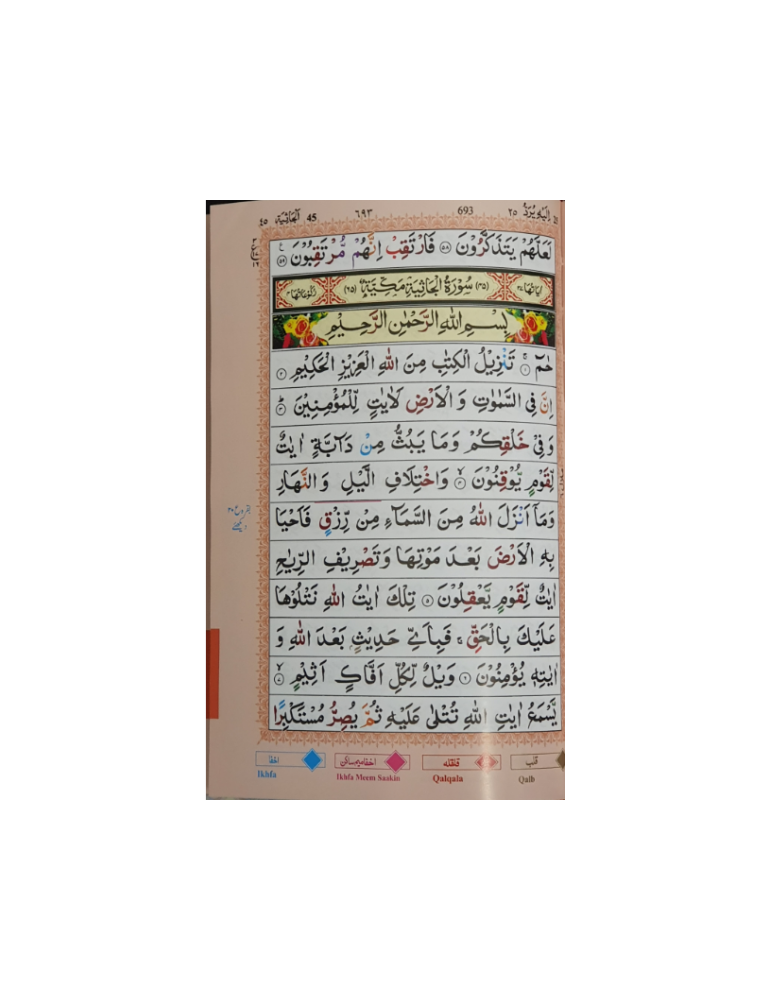 اِلَيْهِ يُرَدُّ ٢٥ 693 ٦٩٣ 45 اَلْجَاثِيَة ٤٥
لَعَلَّهُمْ يَتَذَكَّرُوْنَ ٥٨ فَارْتَقِبْ اِنَّهُمْ مُّرْتَقِبُوْنَ ٥٩
اٰيَاتُهَا ٣٧ (٤٥) سُوْرَةُ الْجَاثِيَةِ مَكِّيَّةٌ (٦٥) رُكُوْعَاتُهَا ٤
بِسْمِ اللهِ الرَّحْمٰنِ الرَّحِيْمِ
حٰمٓ ١ تَنْزِيْلُ الْكِتٰبِ مِنَ اللهِ الْعَزِيْزِ الْحَكِيْمِ ٢
اِنَّ فِى السَّمٰوٰتِ وَ الْاَرْضِ لَاٰيٰتٍ لِّلْمُؤْمِنِيْنَ ٣
وَ فِىْ خَلْقِكُمْ وَ مَا يَبُثُّ مِنْ دَآبَّةٍ اٰيٰتٌ
لِّقَوْمٍ يُّوْقِنُوْنَ ٤ وَ اخْتِلَافِ الَّيْلِ وَ النَّهَارِ
وَ مَاۤ اَنْزَلَ اللهُ مِنَ السَّمَآءِ مِنْ رِّزْقٍ فَاَحْيَا
بِهِ الْاَرْضَ بَعْدَ مَوْتِهَا وَ تَصْرِيْفِ الرِّيٰحِ
اٰيٰتٌ لِّقَوْمٍ يَّعْقِلُوْنَ ٥ تِلْكَ اٰيٰتُ اللهِ نَتْلُوْهَا
عَلَيْكَ بِالْحَقِّ ۚ فَبِاَىِّ حَدِيْثٍۭ بَعْدَ اللهِ وَ
اٰيٰتِهٖ يُؤْمِنُوْنَ ٦ وَيْلٌ لِّكُلِّ اَفَّاكٍ اَثِيْمٍ ٧
يَّسْمَعُ اٰيٰتِ اللهِ تُتْلٰى عَلَيْهِ ثُمَّ يُصِرُّ مُسْتَكْبِرًا
قلب قلقله اخفا میم ساکن اخفا
Qalb Qalqala Ikhfa Meem Saakin Ikhfa